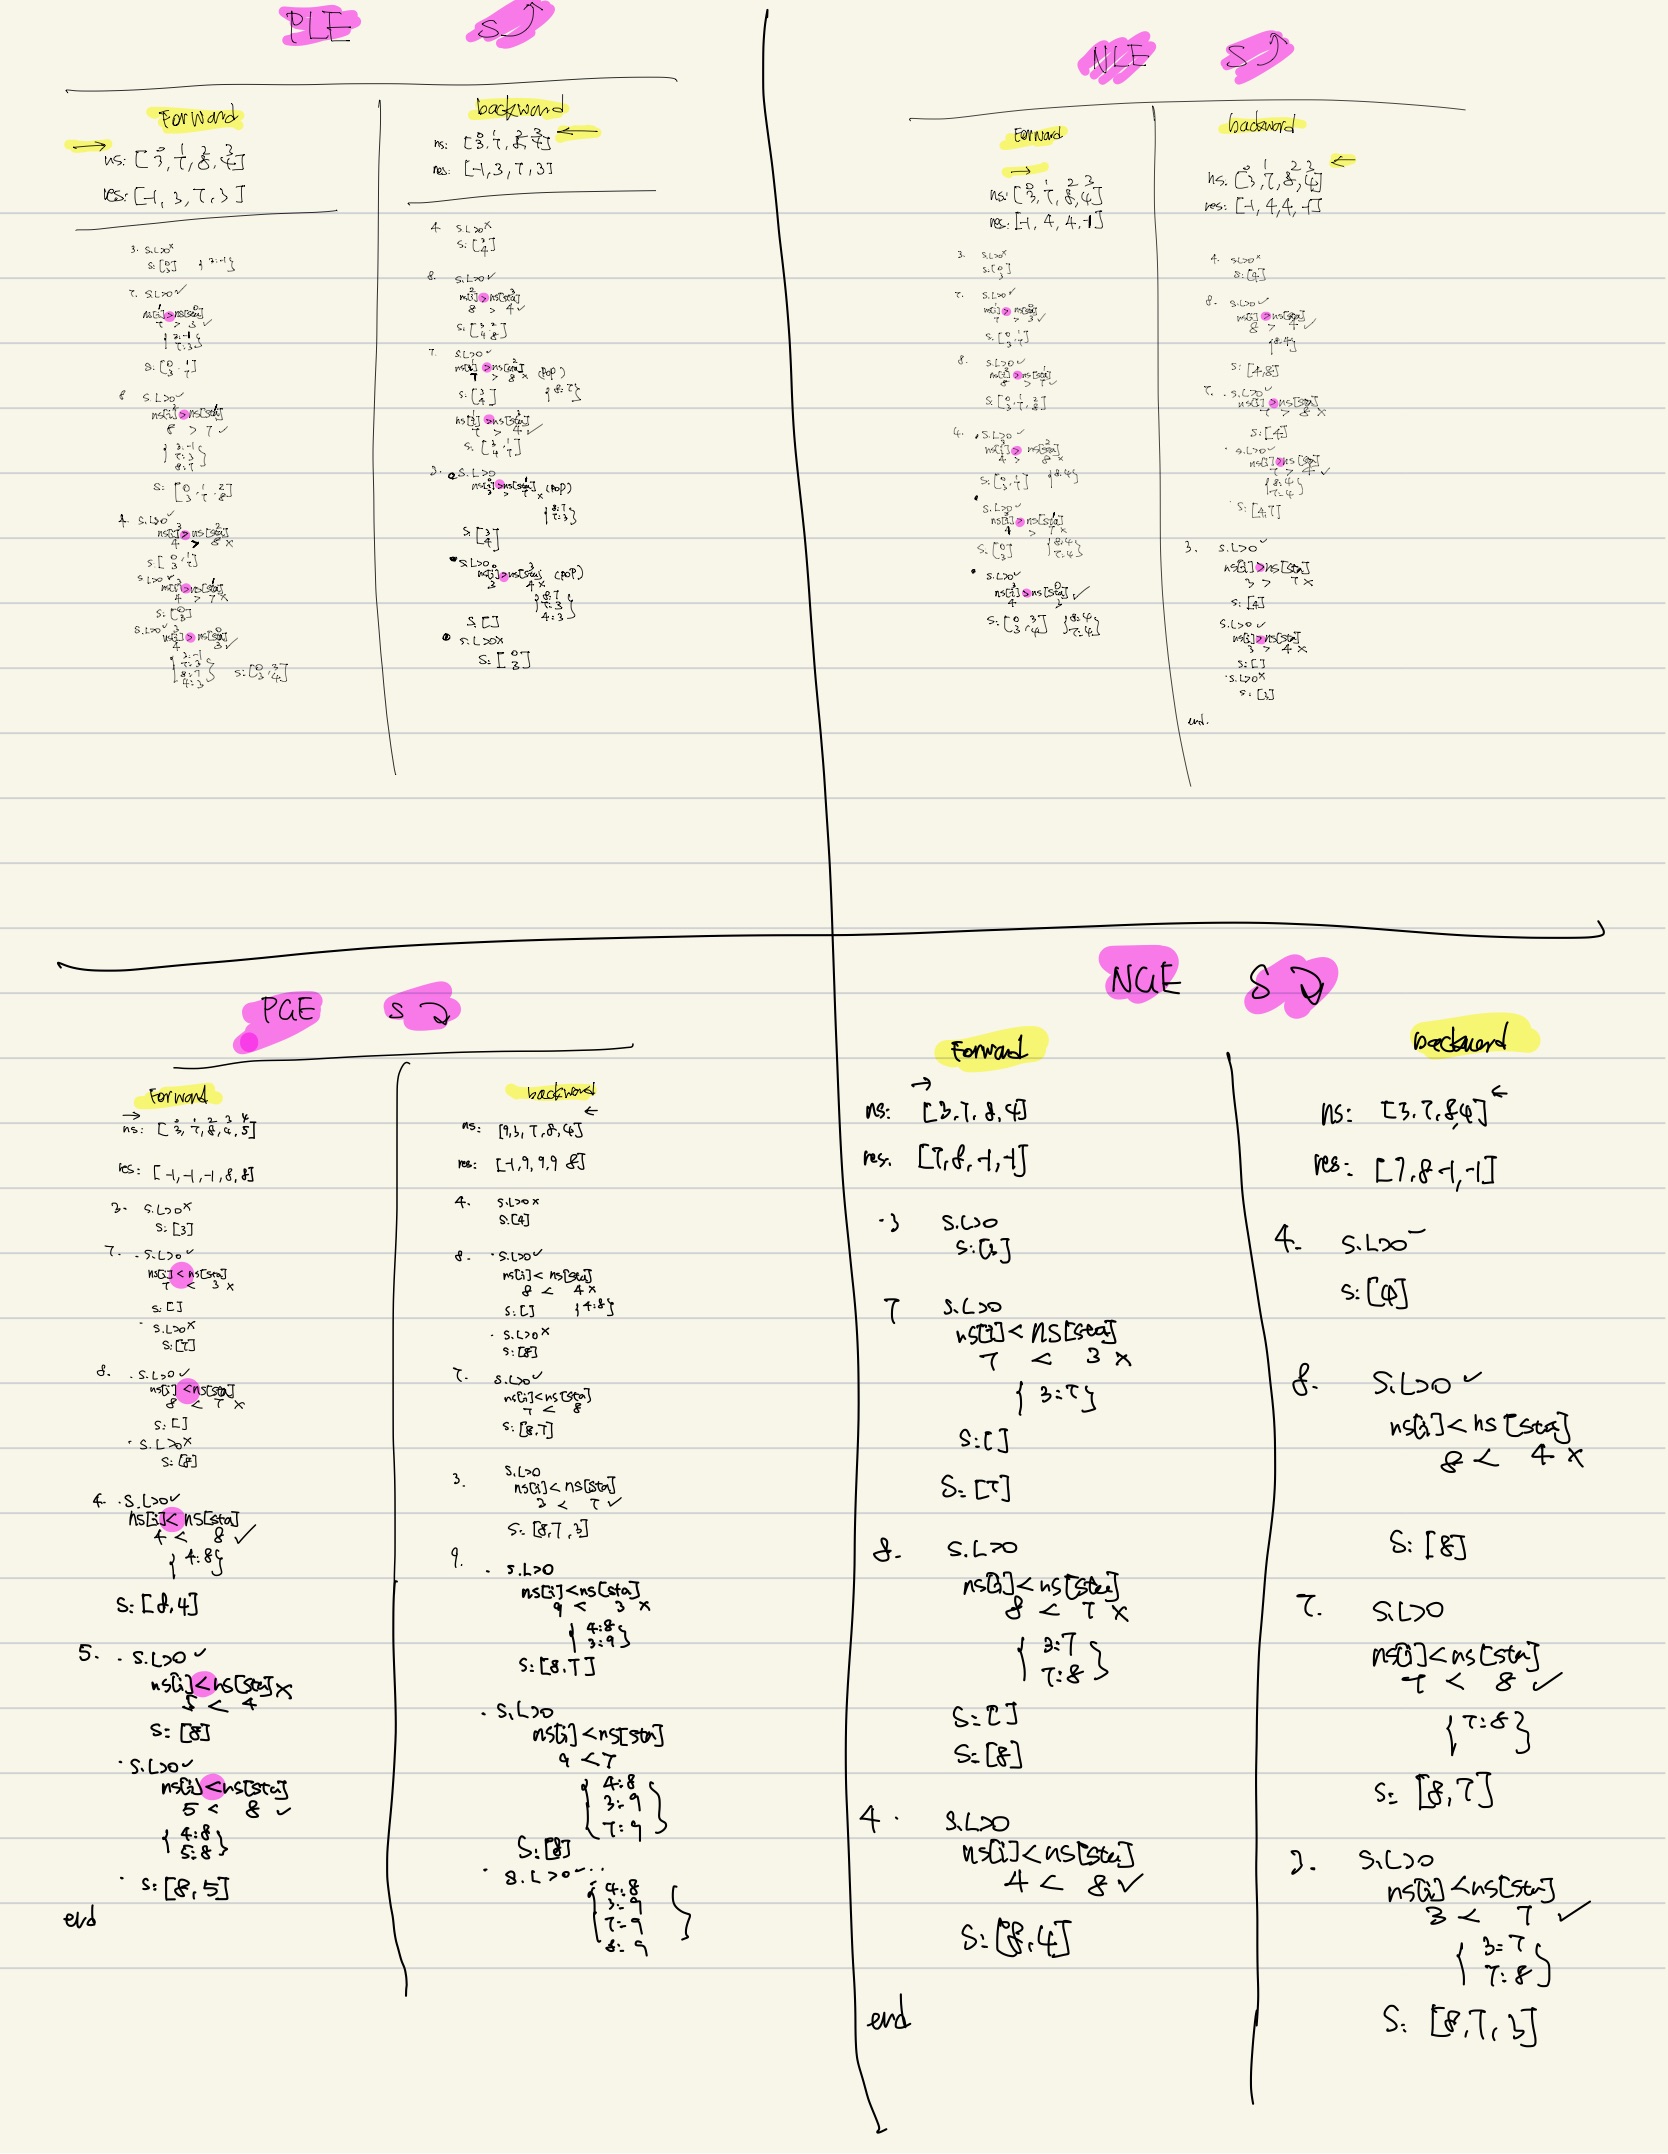 PLE S
Forward
ns: [3, 7, 8, 4]
0 1 2 3
res: [-1, 3, 7, 3]
3. S.L>0 x
S: [3] {3:-1}
7. S.L>0 ✓
ns[i] > ns[sta]
7 > 3 ✓
{3:-1
7:3}
S: [3, 7]
8 S.L>0 ✓
ns[i] > ns[sta]
8 > 7 ✓
{3:-1
7:3
8:7}
S: [3, 7, 8]
4. S.L>0 ✓
ns[i] > ns[sta]
4 > 8 x
S: [3, 7]
S.L>0 ✓
ns[i] > ns[sta]
4 > 7 x
S: [3]
S.L>0 ✓
ns[i] > ns[sta]
4 3 ✓
{3:-1
7:3
8:7
4:3} S: [3, 4]
backward
ns: [3, 7, 8, 4]
0 1 2 3
res: [-1, 3, 7, 3]
4. S.L>0 x
S: [4]
8. S.L>0 ✓
ns[i] > ns[sta]
8 > 4 ✓
S: [4 8]
7. S.L>0 ✓
ns[i] > ns[sta]
7 > 8 x (POP)
S: [4] {8:7}
ns[i] > ns[sta]
7 > 4 ✓
S: [4, 7]
3. S.L>0
ns[i] > ns[sta] (POP)
3 > 7 x
{8:7
7:3}
S: [4]
S.L>0
ns[i] > ns[sta] (POP)
3 4 x
{8:7
7:3
4:3}
S: []
S.L>0 x
S: [3]
NLE S
Forward
0 1 2 3
ns: [3, 7, 8, 4]
res: [-1, 4, 4, -1]
3. S.L>0 x
S: [3]
7. S.L>0 ✓
ns[i] > ns[sta]
7 > 3 ✓
S: [3, 7]
8. S.L>0 ✓
ns[i] > ns[sta]
8 > 7 ✓
S: [3, 7, 8]
4. S.L>0 ✓
ns[i] > ns[sta]
4 > 8 x
S: [3, 7] {8:4}
S.L>0 ✓
ns[i] > ns[sta]
4 > 7 x
S: [3] {8:4
7:4}
S.L>0 ✓
ns[i] > ns[sta] ✓
4 3
S: [3, 4] {8:4
7:4}
backward
0 1 2 3
ns. [3, 7, 8, 4]
res: [-1, 4, 4, -1]
4. S.L>0 x
S: [4]
8. S.L>0 ✓
ns[i] > ns[sta]
8 > 4 ✓
{8:4}
S: [4, 8]
7. S.L>0 ✓
ns[i] > ns[sta]
7 > 8 x
S: [4]
S.L>0 ✓
ns[i] > ns[sta]
7 > 4 ✓
{8:4
7:4}
S: [4, 7]
3. S.L>0 ✓
ns[i] > ns[sta]
3 > 7 x
S: [4]
S.L>0 ✓
ns[i] > ns[sta]
3 > 4 x
S: []
S.L>0 x
S: [3]
end.
PGE S
Forward
0 1 2 3 4
ns: [3, 7, 8, 4, 5]
res: [-1, -1, -1, 8, 8]
3. S.L>0 x
S: [3]
7. S.L>0 ✓
ns[i] < ns[sta]
7 < 3 x
S: []
S.L>0 x
S: [7]
8. S.L>0 ✓
ns[i] < ns[sta]
8 < 7 x
S: []
S.L>0 x
S: [8]
4. S.L>0 ✓
ns[i] < ns[sta]
4 < 8 ✓
{4:8}
S: [8, 4]
5. S.L>0 ✓
ns[i] < ns[sta] x
5 < 4
S: [8]
S.L>0 ✓
ns[i] < ns[sta]
5 < 8 ✓
{4:8
5:8}
S: [8, 5]
end
backward
ns: [9, 3, 7, 8, 4]
res: [-1, 9, 9, 9 8]
4. S.L>0 x
S: [4]
8. S.L>0 ✓
ns[i] < ns[sta]
8 < 4 x
S: [] {4:8}
S.L>0 x
S: [8]
7. S.L>0 ✓
ns[i] < ns[sta]
7 < 8
S: [8, 7]
3. S.L>0
ns[i] < ns[sta]
3 < 7 ✓
S: [8, 7, 3]
9. S.L>0
ns[i] < ns[sta]
9 < 3 x
{4:8
3:9}
S: [8, 7]
S.L>0
ns[i] < ns[sta]
9 < 7
{4:8
3:9
7:9}
S: [8]
S.L>0 ✓
{4:8
3:9
7:9
8:9}
NGE S
Forward
ns: [3, 7, 8, 4]
res. [7, 8, -1, -1]
3 S.L>0
S: [3]
7 S.L>0
ns[i] < ns[sta]
7 < 3 x
{3:7}
S: []
S: [7]
8. S.L>0
ns[i] < ns[sta]
8 < 7 x
{3:7
7:8}
S: []
S: [8]
4. S.L>0
ns[i] < ns[sta]
4 < 8 ✓
S: [8, 4]
end
backward
ns: [3, 7, 8, 4]
res: [7, 8 -1, -1]
4. S.L>0
S: [4]
8. S.L>0 ✓
ns[i] < ns[sta]
8 < 4 x
S: [8]
7. S.L>0
ns[i] < ns[sta]
7 < 8 ✓
{7:8}
S: [8, 7]
3. S.L>0
ns[i] < ns[sta]
3 < 7 ✓
{3:7
7:8}
S: [8, 7, 3]